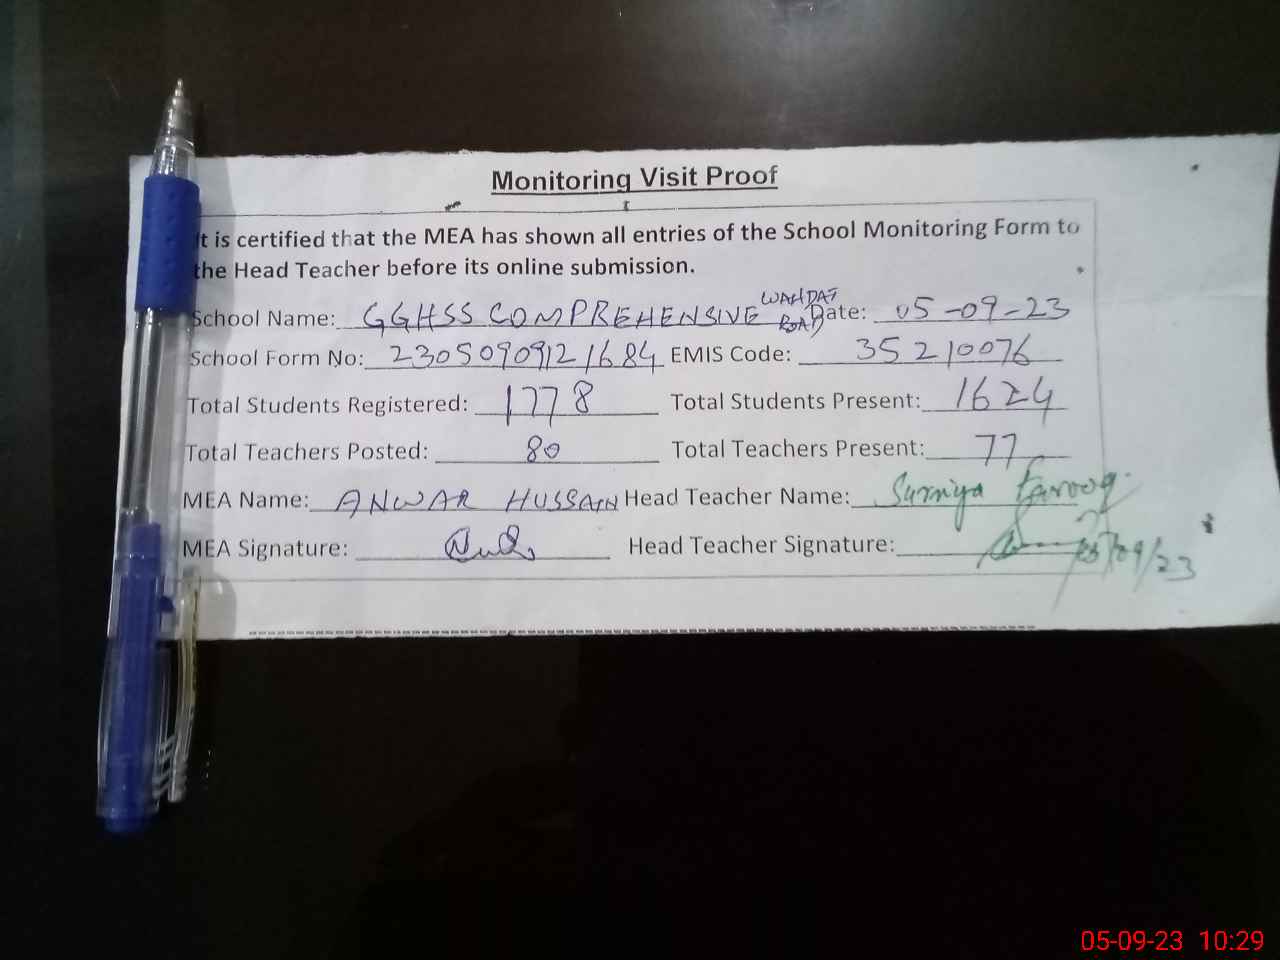 Monitoring Visit Proof
It is certified that the MEA has shown all entries of the School Monitoring Form to
the Head Teacher before its online submission.
School Name: GGHSS COMPREHENSIVE WAHDAT ROAD Date: 05-09-23
School Form No: 23050909121684 EMIS Code: 35210076
Total Students Registered: 1778 Total Students Present: 1624
Total Teachers Posted: 80 Total Teachers Present: 77
MEA Name: ANWAR HUSSAIN Head Teacher Name: Surriya Farooq
MEA Signature: Head Teacher Signature: 05/09/23
05-09-23 10:29